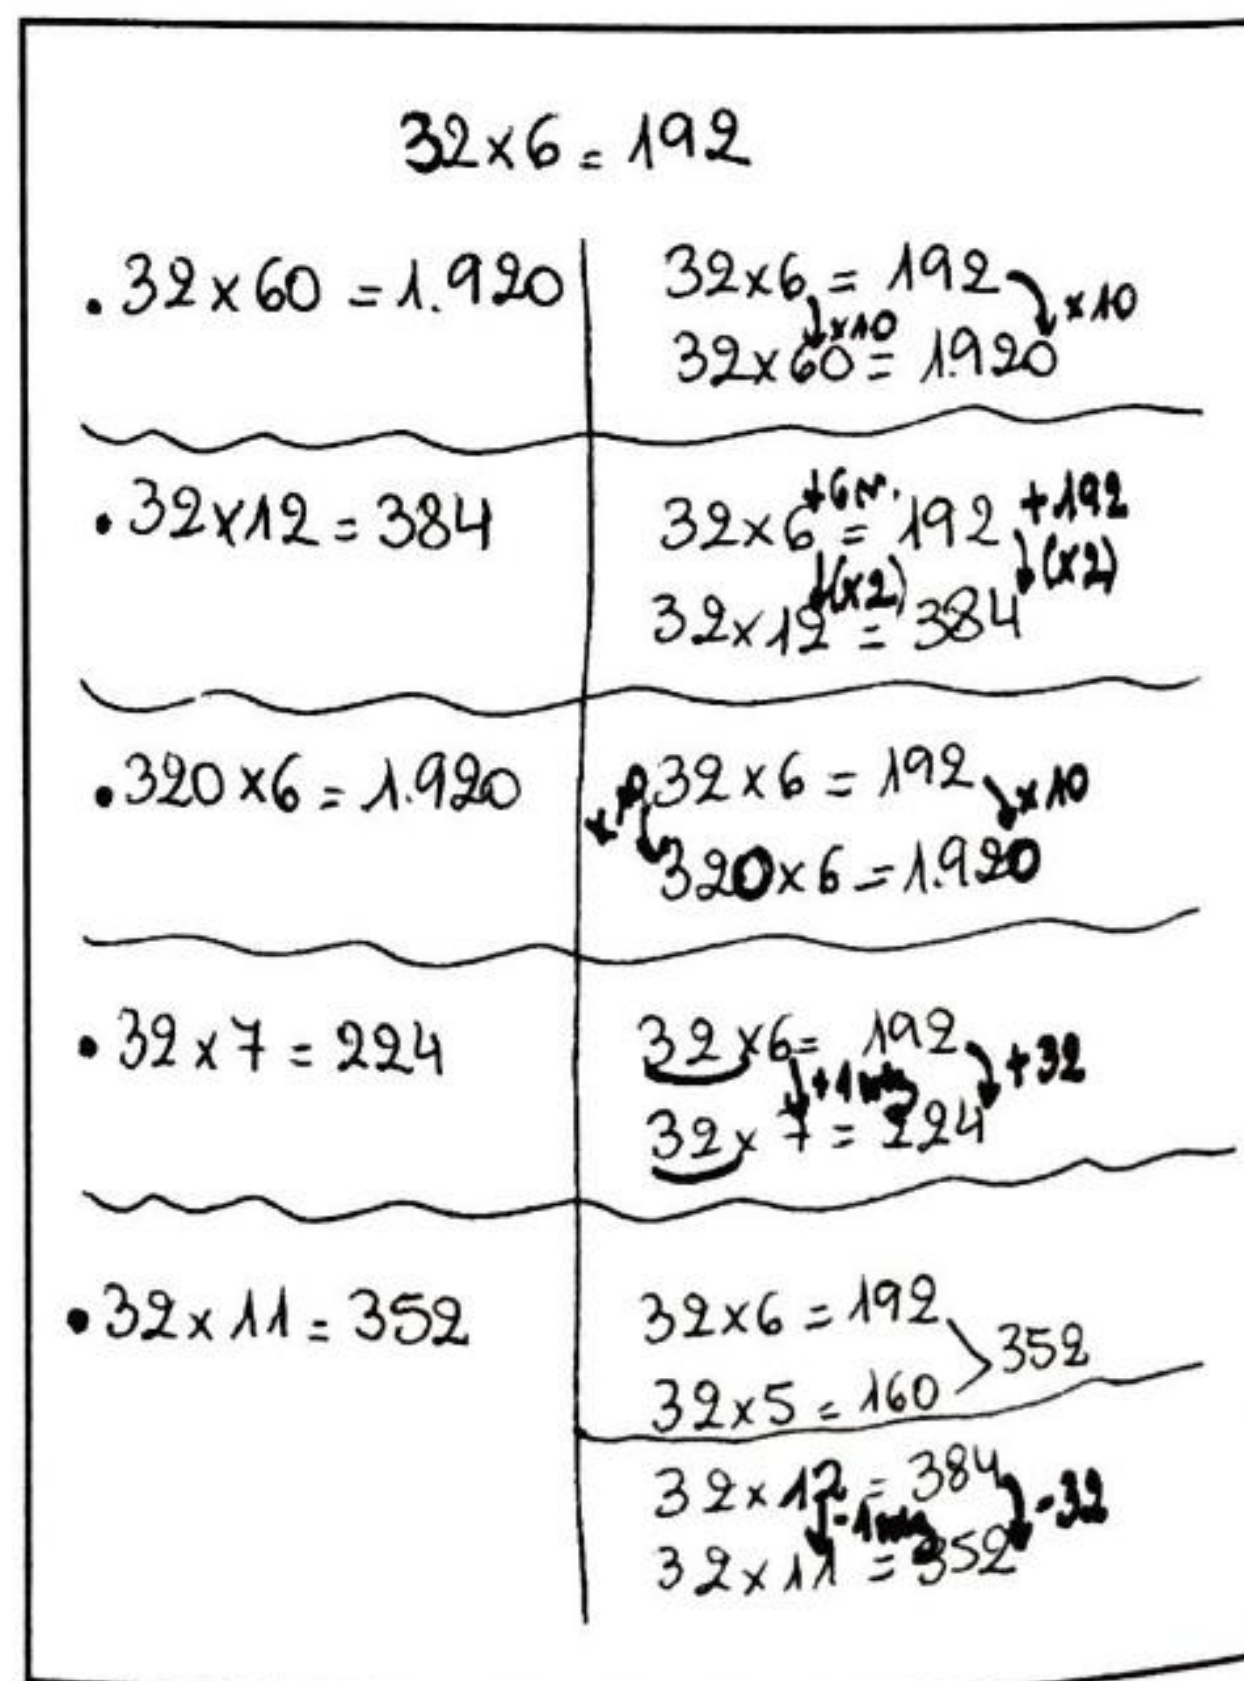 32×6=192
.32×60=1.920
32×6=192 ×10
×10
32×60=1.920
.32×12=384
+6 v. +192
32×6=192
(×2) (×2)
32×12=384
.320×6=1.920
32×6=192 ×10
×10
320×6=1.920
.32×7=224
32×6=192 +32
+1
32×7=224
.32×11=352
32×6=192
352
32×5=160
32×12=384 -32
-1
32×11=352